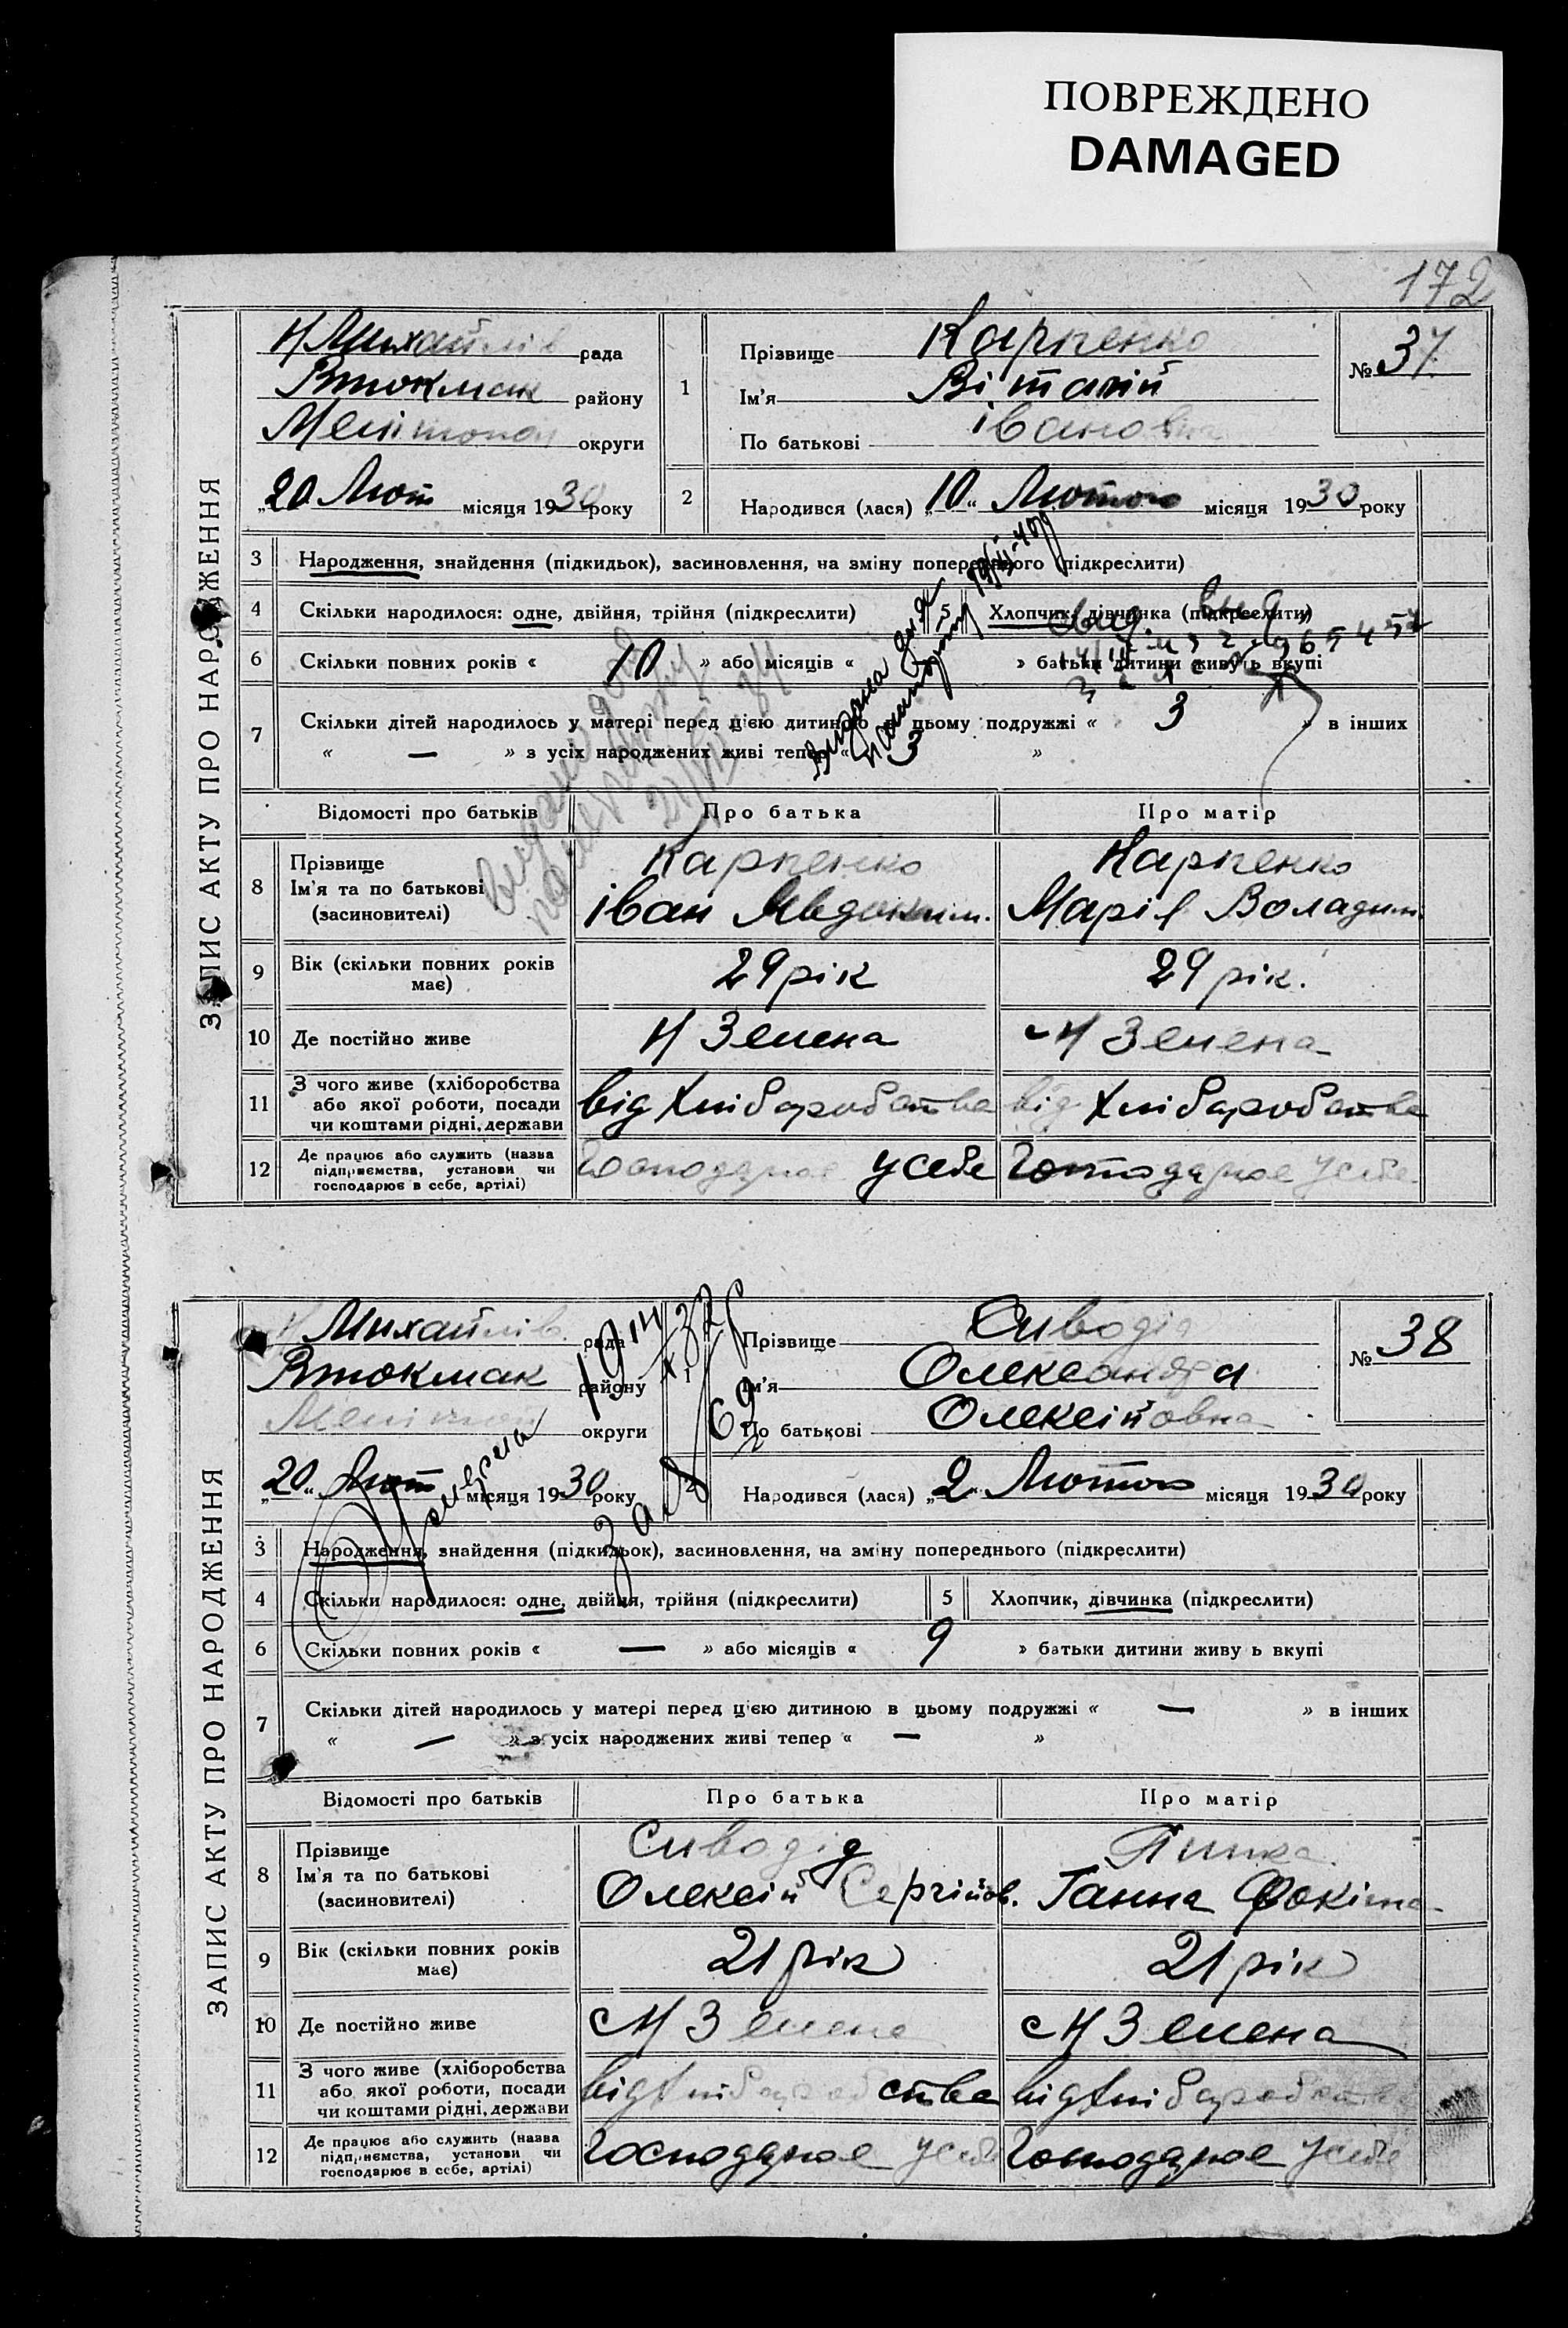 ПОВРЕЖДЕНО
DAMAGED
172
ЗАПИС АКТУ ПРО НАРОДЖЕННЯ
Н Михайлів рада
Втокмак району
Мелітопол округи
„20 Лют місяця 1930 року
1
Прізвище Карпенко
Ім'я Віталій
По батькові Іванович
№ 37
2 Народився (лася) „10“ Лютого місяця 1930 року
3 Народження, знайдення (підкидьок), засиновлення, на зміну попереднього (підкреслити)
4 Скільки народилося: одне, двійня, трійня (підкреслити) 5 Хлопчик, дівчинка (підкреслити)
6 Скільки повних років « 10 » або місяців « » батьки дитини живуть вкупі
7 Скільки дітей народилось у матері перед цією дитиною в цьому подружжі « 3 » в інших
« — » з усіх народжених живі тепер « 3 »
Відомості про батьків Про батька Про матір
8 Прізвище Ім'я та по батькові (засиновителі)
Карпенко Карпенко
Іван Явдоким. Марія Воладим.
9 Вік (скільки повних років має) 29 рік 29 рік.
10 Де постійно живе Н Зелена с Н Зелена
11 З чого живе (хліборобства або якої роботи, посади чи коштами рідні, держави від Хліборобства від Хліборобства
12 Де працює або служить (назва підприємства, установи чи господарює в себе, артілі) Господарює усебе Господарює усебе
ЗАПИС АКТУ ПРО НАРОДЖЕННЯ
Н Михайлів. рада
Втокмак району
Мелітоп округи
„20“ Лют місяця 1930 року
Прізвище Сиводід
Ім'я Олександра
По батькові Олексійовна
№ 38
2 Народився (лася) „2“ Лютого місяця 1930 року
3 Народження, знайдення (підкидьок), засиновлення, на зміну попереднього (підкреслити)
4 Скільки народилося: одне, двійня, трійня (підкреслити) 5 Хлопчик, дівчинка (підкреслити)
6 Скільки повних років « — » або місяців « 9 » батьки дитини живу ь вкупі
7 Скільки дітей народилось у матері перед цією дитиною в цьому подружжі « — » в інших
« — » з усіх народжених живі тепер « — »
Відомості про батьків Про батька Про матір
8 Прізвище Ім'я та по батькові (засиновителі)
Сиводід
Олексій Сергійов. Ганна Фоківна
9 Вік (скільки повних років має) 21 рік 21 рік
10 Де постійно живе с Н Зелена с Н Зелена
11 З чого живе (хліборобства або якої роботи, посади чи коштами рідні, держави від Хліборобства від Хліборобства
12 Де працює або служить (назва підприємства, установи чи господарює в себе, артілі) Господарює усебе Господарює усебе